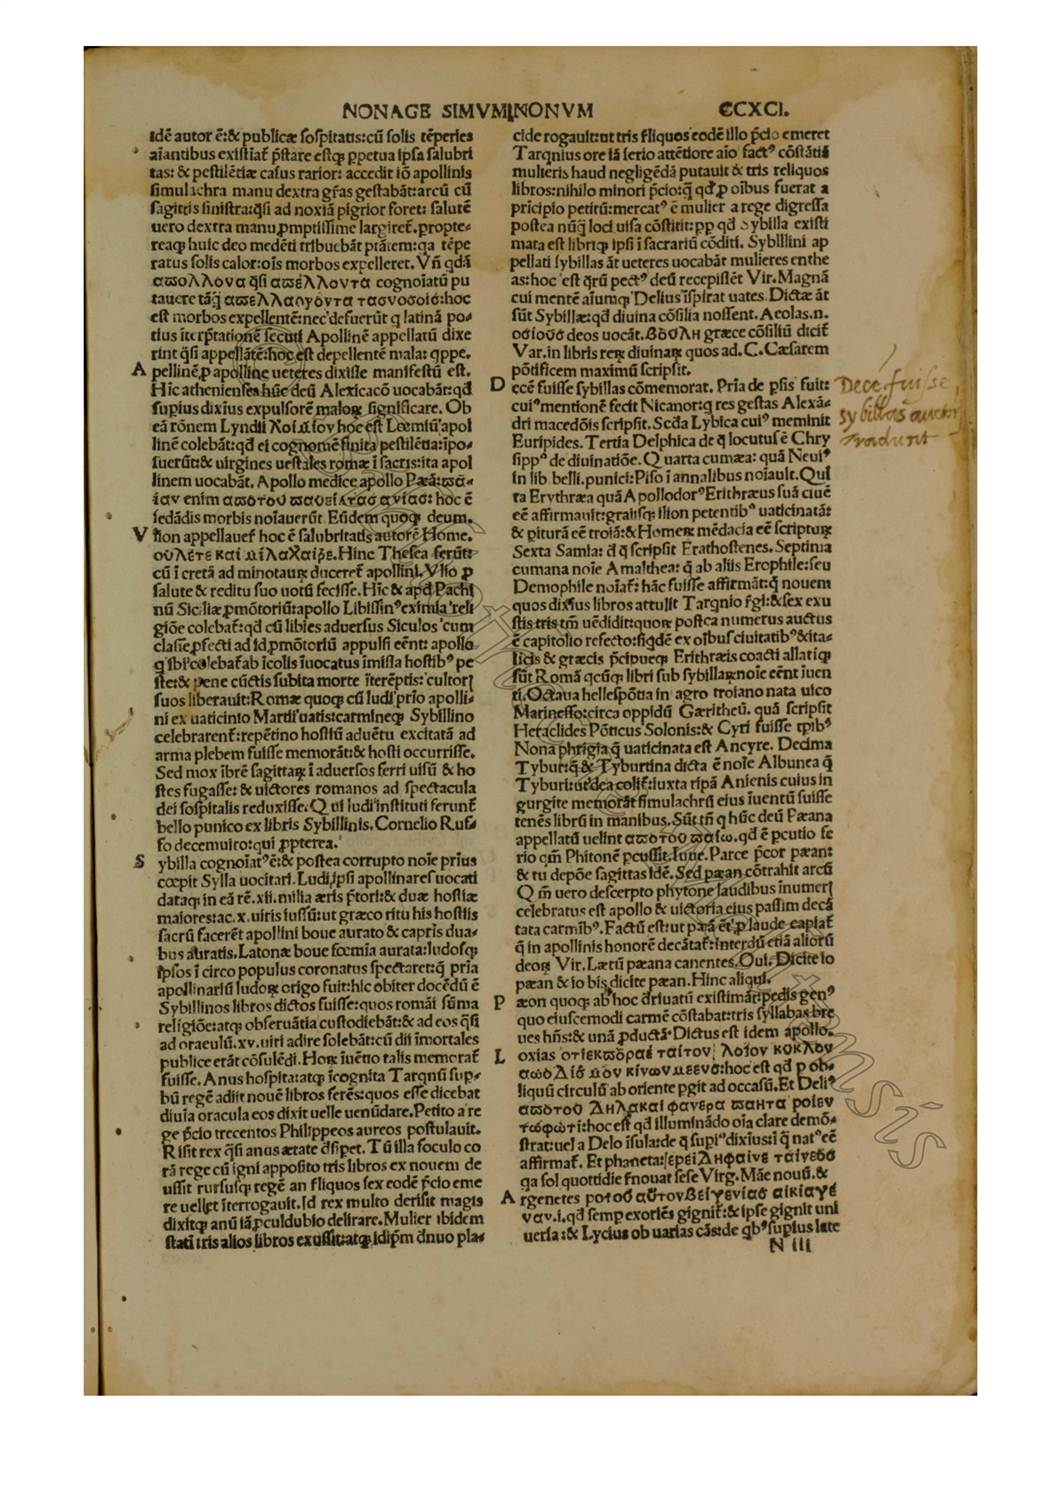 NONAGE SIMVM NONVM
CCXCI.
idē autor ē:& publicæ sospitatis:cū solis tēperies
aīantibus existiat᷑ p̄stare estq̨ ppetua ipsa salubri
tas: & pestilētiæ casus rarior: accedit iō apollinis
simulachra manu dextra gr̄as gestabāt:arcū cū
sagittis sinistra:q̄si ad noxiā pigrior foret: salutē
uero dextra manu ꝓmptissime largiret᷑. propte-
reaq̨ huic deo medēti tribuebāt ptātem:qa tēpe
ratus solis calor:oīs morbos expelleret. Vn̄ qdā
αϖολλονα q̄si αϖελλοντα cognoīatū pu
tauere tāq̄ αϖελλαηγοντα τασνοσοισ:hoc
est morbos expellentē:nec defuerūt q latinā po-
tius īterp̄tationē secuti Apollinē appellatū dixe
rint q̄si appellātē:hoc est depellentē mala: qppe.
A pellinē ꝓ apolline ueteres dixisse manifestū est.
Hic athenienses hūc deū Alexicacō uocabāt:qd
supius dixius expulsorē maloꝝ significare. Ob
eā rōnem Lyndii λοιμιον hoc est Lœmiū apol
linē colebāt:qd ei cognomē finita pestilētia:īpo-
suerūt:& uirgines uestales romæ ī sacris:ita apol
linem uocabāt. Apollo medice apollo Pæā:ϖα-
ιαν enim αϖοτου ϖαυειντασ ανιασ: hoc ē
sedādis morbis noīauerūt. Eūdem quoq̨ deum.
V lion appellauer᷑ hoc ē salubritatis autorē Home.
ουλετε και μιλαχαιρε. Hinc Thesea ferūt:
cū ī cretā ad minotauꝝ duceret᷑ apollini. Vlio ꝓ
salute & reditu suo uotū fecisse. Hic & apd Pachi
nū Siciliæ ꝓmōtoriū:apollo Libissinꝰ eximia reli
giōe colebat᷑:qd cū libies aduersus Siculos cum
classe ꝓfecti ad id ꝓmōtoriū appulsi eēnt: apollo
q ibi colebat᷑ ab īcolis īuocatus imissa hostibꝰ pe
ste:& pene cūctis subita morte īterēptis: cultores
suos liberauit:Romæ quoq̨ cū ludi prio apolli-
ni ex uaticinto Martii uatis:carmineq̨ Sybillino
celebrarent᷑:repētino hostiū aduētu excitatā ad
arma plebem fuisse memorāt:& hosti occurrisse.
Sed mox ībrē sagittaꝝ ī aduersos ferri uisū & ho
stes fugasse: & uictores romanos ad spectacula
dei sospitalis reduxisse. Q ui ludi instituti ferunt᷑
bello punico ex libris Sybillinis. Cornelio Ruf-
fo decemuiro:qui ꝓpterea.
S ybilla cognoīatꝰ ē:& postea corrupto noīe prius
cœpit Sylla uocitari. Ludi, ipsi apollinares uocati
dataq̨ in eā rē.xii.milia æris p̄tori:& duæ hostiæ
maiores:ac.x.uiris iussū:ut græco ritu his hostiis
sacrū facerēt apollini boue aurato & capris dua-
bus auratis.Latonæ boue fœmia aurata:ludosq̨
ipsos ī circo populus coronatus spectaret:q̄ pria
apollinariū ludoꝝ origo fuit:hic obiter docēdū ē
Sybillinos libros dictos fuisse:quos romāi sūma
religiōe:atq̨ obseruātia custodiebāt:& ad eos q̄si
ad oraculū.xv.uiri adire solebāt:cū dii īmortales
publice erāt cōsulēdi. Hoꝝ īuētio talis memorat᷑
fuisse. Anus hospita:atq̨ īcognita Tarqnū sup-
bū regē adiit nouē libros ferēs: quos esse dicebat
diuīa oracula eos dixit uelle uenūdare. Petito a re
ge p̄cio trecentos Philippeos aureos postulauit.
Risit rex q̄si anus ætate dsipet. Tū illa foculo co
rā rege cū igni apposito tris libros ex nouem de
ussit rursusq̨ regē an r̄liquos sex eodē p̄cio eme
re uellet īterrogauit. Id rex multo derisit magis
dixitq̨ anū iā ꝓculdubio delirare. Mulier ibidem
statī tris alios libros exussit:atq̨ idip̄m d̄nuo pla-
cide rogauit:ut tris r̄liquos eodē illo p̄cio emeret
Tarqnius ore iā serio attētiore aīo factꝰ cōstātiā
mulieris haud negligēdā putauit & tris reliquos
libros:nihilo minori p̄cio:q̄ qd ꝓ oībus fuerat a
pricipio petitū:mercatꝰ ē mulier a rege digressa
postea nūq̄ loci uisa cōstitit:pp qd Sybilla existi
mata est libriq̨ ipsi ī sacrariū cōditi. Sybillini ap
pellati sybillas āt ueteres uocabāt mulieres enthe
as:hoc est qꝝ pectꝰ deū recepissēt Vir. Magnā
cui mentē aīumq̨ Delius īspirat uates. Dictæ āt
sūt Sybillæ:qd diuina cōsilia nossent. Aeolas.n.
οσιουσ deos uocāt. βουλη græce cōsiliū dicit᷑
Var.in libris reꝝ diuinaꝝ quos ad.C.Cæsarem
pōtificem maximū scripsit.
D ecē fuisse sybillas cōmemorat. Pria de psis fuit:
cuiꝰ mentionē fecit Nicanor:q res gestas Alexā-
dri macedōis scripsit. Scda Lybica cuiꝰ meminit
Euripides. Tertia Delphica de q̄ locutus ē Chry
sippꝰ de diuinatiōe. Q uarta cumæa: quā Neuiꝰ
in lib. belli.punici:Piso ī annalibus noīauit. Qui
ta Erythræa quā Apollodorꝰ Erithræus suā ciuē
eē affirmauit:graiisq̨ ilion petentibꝰ uaticinatā:
& pituraꝫ eē troiā:& Homeꝝ mēdacia eē scriptuꝝ
Sexta Samia: d̄ q̄ scripsit Erathostenes. Septima
cumana noīe Amalthea: q̄ ab aliis Erophile:seu
Demophile noīat᷑: hāc fuisse affirmāt:q̄ nouem
quos dixius libros attulit Tarqnio r̄gi:& sex exu
stis tris tm̄ uēdidit:quoꝝ postea numerus auctus
ē capitolio refecto:siqdē ex oībus ciuitatibꝰ & ita-
licis & græcis p̄cipueq̨ Erithræis coacti allatiq̨
sūt Romā qcūq̨ libri sub sybillaꝝ noīe eēnt īuen
ti. Octaua hellespōtia in agro troiano nata uico
Marmesso:circa oppidū Gæritheū. quā scripsit
Heraclides Pōticus Solonis:& Cyri fuisse tp̄ibꝰ
Nona phrigia q̄ uaticinata est Ancyre. Decima
Tybur:q̄ & Tyburtina dicta ē noīe Albunea q̄
Tyburi:ut dea colit᷑:iuxta ripā Anienis cuius in
gurgite memorāt simulachrū eius īuentū fuisse
tenēs librū in manibus. Sūt tn̄ q hūc deū Pæana
appellatū uelint αϖοτου ϖαιω.qd ē pcutio fe
rio qm̄ Phitonē pcussit. Iuue. Parce p̄cor pæan:
& tu depōe sagittas Idē. Sed pæan cōtrahit arcū
Q m̄ uero descerpto phytone laudibus īnumeris
celebratus est apollo & uictoria eius passim decā
tata carmibꝰ. Factū est:ut pæā ēt ꝓ laude capiat᷑
q̄ in apollinis honorē decātat᷑:interdū etiā alioꝝ
deoꝝ Vir. Lætū pæana canentes. Oui. Dicite io
pæan & io bis dicite pæan. Hinc aliqui.
P æon quoq̨ ab hoc d̄riuatū existimāt:pedis genꝰ
quo eiuscemodi carmē cōstabat:tris syllabas bre
ues hn̄s:& unā ꝓductā. Dictus est idem apollo.
L oxias οτιεκϖοραε ταιτον λοξον κυκλον
αωολιο μον κινωνμεενο:hoc est qd p ob-
liquū circulū ab oriente pgit ad occasū. Et Deliꝰ
αϖοτου Δηλακαι φανερα ϖαντα ροιευ
τωφωτι:hoc est qd illuminādo oīa clare demō-
strat:uel a Delo īsula:de q̄ supiꝰ dixius:ī q̄ natꝰ eē
affirmat᷑. Et phaneta:
qa sol quottidie r̄nouat sese Virg. Māe nouū.&
A rgenetes
ναν.i.qd semp exoriēs gignit᷑:& ipse gignit uni
uersa:& Lycius ob uarias cās:de qbꝰ supius late
N iii
Decē fuisse
sybillas auctor
tradunt